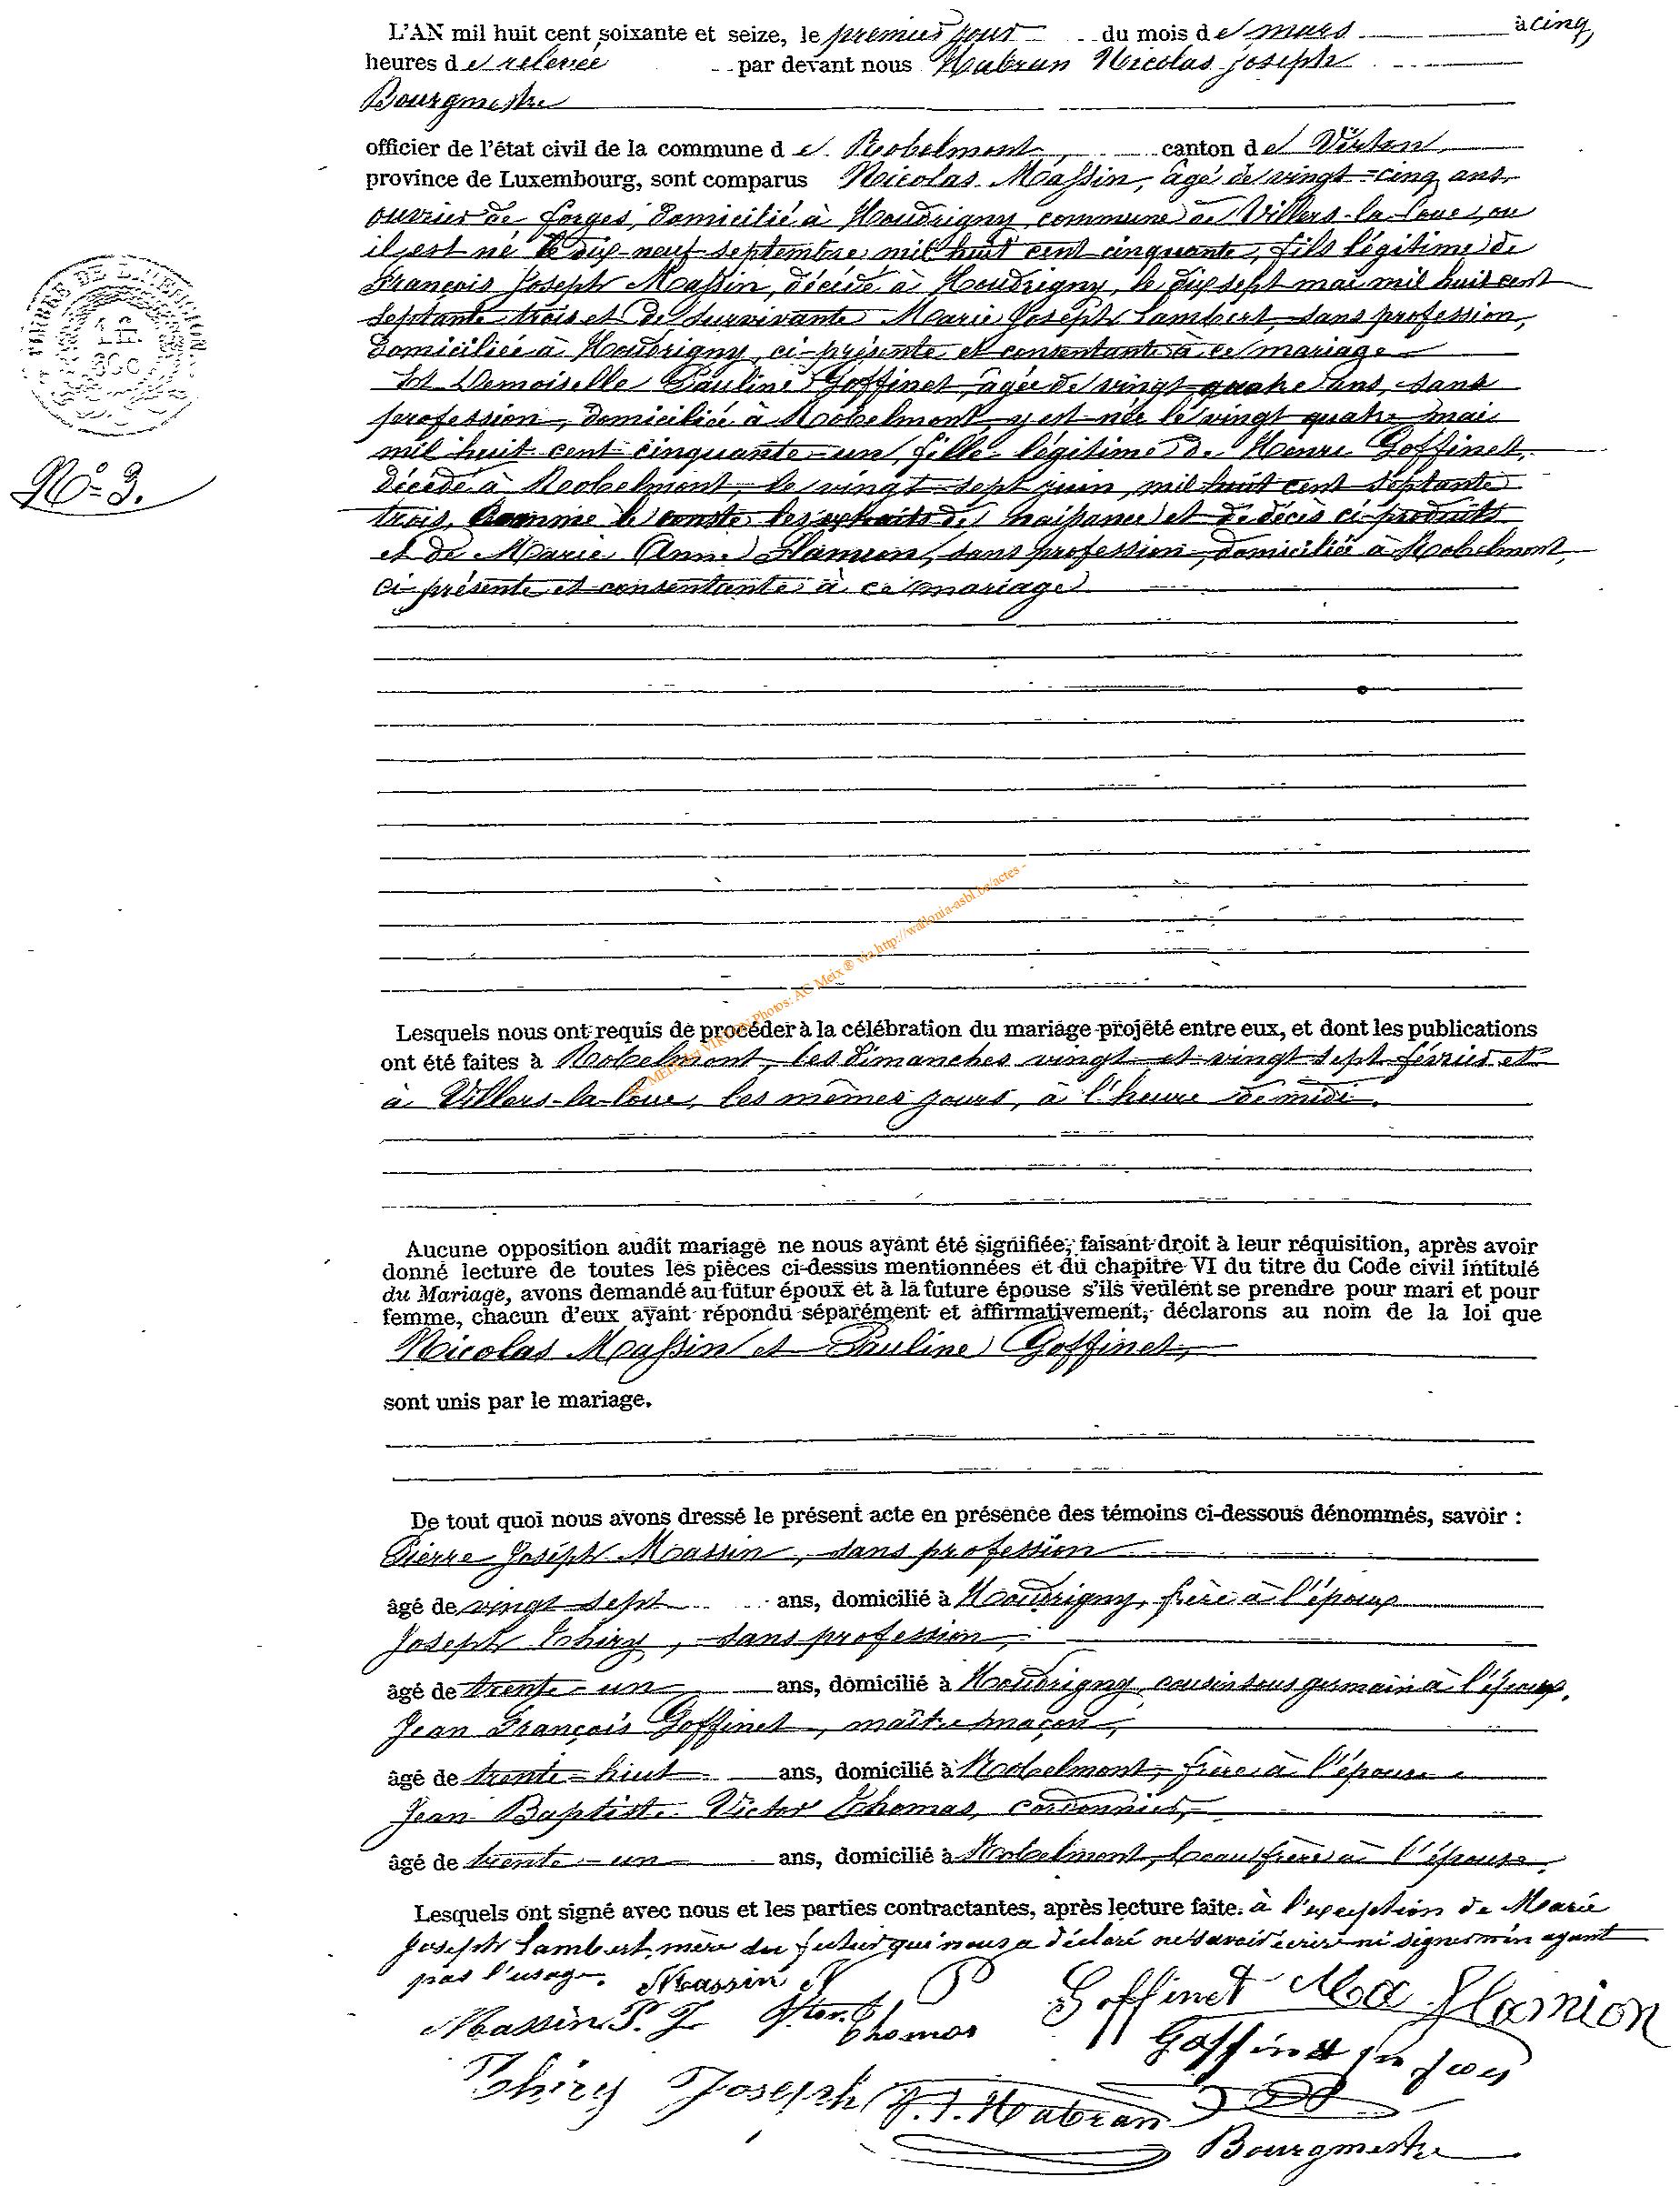 L'AN mil huit cent soixante et seize, le premier jour du mois de mars à cinq
heures de relevée par devant nous Habran Nicolas joseph
Bourgmestre
officier de l'état civil de la commune de Robelmont, canton de Virton
province de Luxembourg, sont comparus Nicolas Massin, âgé de vingt-cinq ans,
ouvrier de forges, domicilié à Houdrigny, commune de Villers-la-loue, ou
il est né le dix-neuf septembre mil huit cent cinquante, fils légitime de
François Joseph Massin, décédé à Houdrigny, le dix sept mai mil huit cent
septante trois et de survivante Marie Joseph Lambert, sans profession,
domiciliée à Houdrigny, ci-présente et consentante à ce mariage
Et Demoiselle Pauline Goffinet, âgée de vingt quatre ans, sans
profession, domiciliée à Robelmont y est née le vingt quatre mai
mil huit cent cinquante-un, fille légitime de Henri Goffinet,
décédé à Robelmont, le vingt-sept juin mil huit cent septante
trois, comme le conste les extraits de naissance et de décès ci-produits
et de Marie Anne Flamion, sans profession, domiciliée à Robelmont,
ci-présente et consentante à ce mariage
Lesquels nous ont requis de procéder à la célébration du mariage projeté entre eux, et dont les publications
ont été faites à Robelmont, les dimanches vingt et vingt sept février et
à Villers-la-loue, les mêmes jours, à l'heure de midi.
Aucune opposition audit mariage ne nous ayant été signifiée, faisant droit à leur réquisition, après avoir
donné lecture de toutes les pièces ci-dessus mentionnées et du chapitre VI du titre du Code civil intitulé
du Mariage, avons demandé au futur époux et à la future épouse s'ils veulent se prendre pour mari et pour
femme, chacun d'eux ayant répondu séparément et affirmativement, déclarons au nom de la loi que
Nicolas Massin et Pauline Goffinet,
sont unis par le mariage.
De tout quoi nous avons dressé le présent acte en présence des témoins ci-dessous dénommés, savoir :
Pierre Joseph Massin, sans profession
âgé de vingt sept ans, domicilié à Houdrigny, frère à l'époux
Joseph Thiry, sans profession,
âgé de trente-un ans, domicilié à Houdrigny cousin sous germain à l'époux,
Jean François Goffinet, maître maçon,
âgé de trente-huit ans, domicilié à Robelmont, frère à l'épouse
Jean Baptiste Victor Thomas, cordonnier,
âgé de trente-un ans, domicilié à Robelmont, beau frère à l'épouse.
Lesquels ont signé avec nous et les parties contractantes, après lecture faite. à l'exception de Marie
Joseph Lambert mère du futur qui nous a déclaré ne savoir écrire ni signer n'en ayant
pas l'usage. Massin N P Goffinet Ma Flamion
Massin P. J Thomas Goffinet
Thiry Joseph N. J. Habran
Bourgmestre
N° 3.
1 fr.
AC Meix ® via http://wallonia-asbl.be/actes -